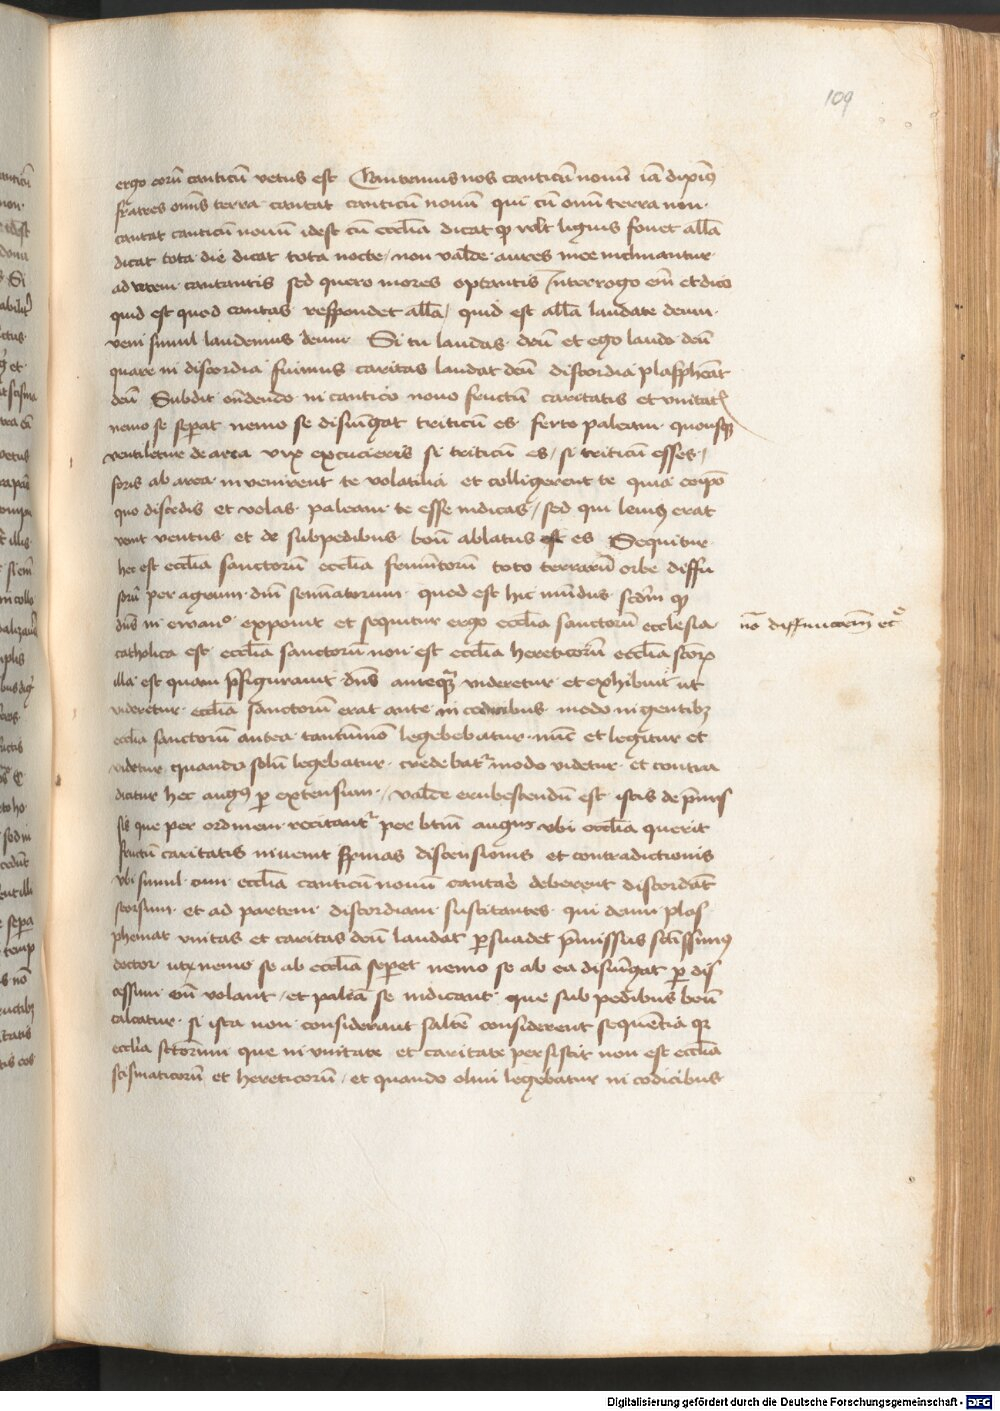 109
ergo eorū canticū vetus est Cantemus nos canticū nouū iā diximꝰ
fratres om̄is terra cantat canticū nouū qui cū om̄i terra non
cantat canticū nouū idest cū eccl̄ia dicat qꝫ vult lignis sonet all̄a
dicat tota die dicat tota nocte / non valde aures mee inclinantur
ad vocem cantantis sed quero mores operantis Interrogo em̄ et dico
quid est quod cantas respondet all̄a / quid est all̄a laudate deum
veni simul laudemus deum Si tu laudas deū et ego laudo deū
quare in discordia sumus caritas laudat deū discordia plasphemat
deū Subdit on̄dendo in cantico nouo fructū caritatis et vnitatis
nemo se sep̄at nemo se disiūgat triticū es ferto paleam quousqꝫ
ventiletur de area vix excucieris si triticū es / si triticū esses /
foris ab area inuenirent te volatilia et colligerent te quia eoip̄o
quo discedis et volas paleam te esse indicas / sed qui leuis erat
venit ventus et de subpedibus boū ablatus es Sequitur
hec est eccl̄ia sanctorū eccl̄ia frumētorū toto terrarū orbe diffu
sorū per agrum dn̄i seminatorum quod est hic mūdus scd̄m qꝫ
dn̄s in ewanᵒ exponit et sequitur ergo eccl̄ia sanctorū ecclesia
catholica est eccl̄ia sanctorū non est eccl̄ia hereticorū eccl̄ia sctorꝫ
illa est quam p̄figurauit dn̄s anteqꝫ videretur et exhibuit ut
videretur eccl̄ia sanctorū erat ante in codicibus modo in gentibꝫ
eccl̄ia sanctorū antea tantūmō legebatur nūc et legitur et
videtur quando solū legebatur credebatᷣ modo videtur et contra
dicitur hec augꝰ p extensum / valde erubescendū est istis de p̄mis
sis que per ordinem recitantᷣ per btm̄ augꝰ vbi eccl̄ia querit
fructū caritatis inuenit spinas discensionis et contradictionis
vbi simul cum eccl̄ia canticū nouū cantare deberent discordāt
seorsum et ad partem discordiam suscitantes qui deum plas
phemat vnitas et caritas deū laudat p̄suadet p̄missus sctissimꝰ
doctor ut nemo se ab eccl̄ia sep̄et nemo se ab ea disiūgat p dis
cessum em̄ volant / et paleā se indicant que sub pedibus boū
calcatur si ista non considerant saltē considerent sequētia qꝫ
eccl̄ia sctorum que in vnitate et caritate persistit non est eccl̄ia
scismaticorū et hereticorū / et quando olim legebatur in codicibus
Digitalisierung gefördert durch die Deutsche Forschungsgemeinschaft - DFG